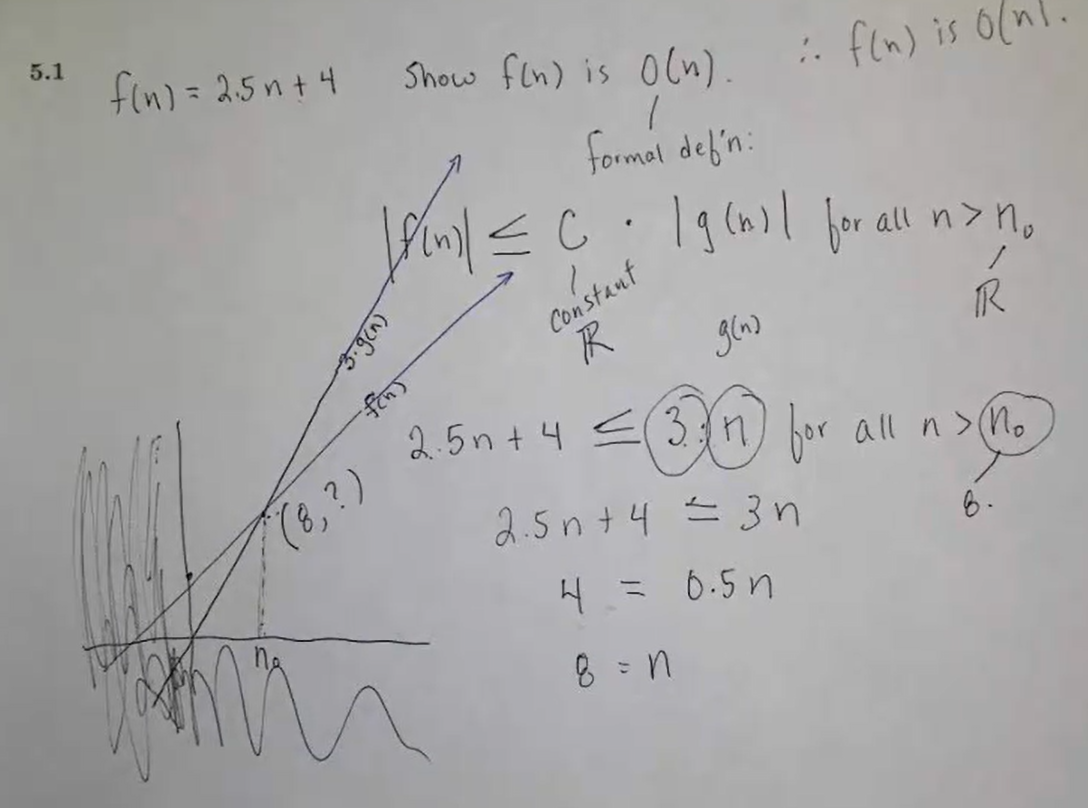 5.1 f(n) = 2.5n + 4 Show f(n) is O(n). ∴ f(n) is O(n).
formal def'n:
|f(n)| ≤ C · |g(n)| for all n > n₀
constant
ℝ
ℝ
g(n)
3·g(n)
f(n)
2.5n + 4 ≤ 3·n for all n > n₀
8.
(8,?)
2.5n + 4 = 3n
4 = 0.5n
8 = n
n₀